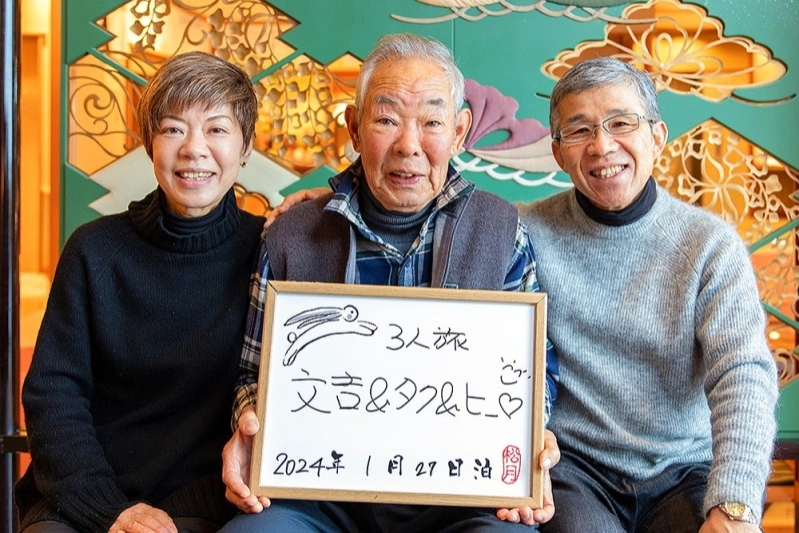 3人旅
文吉&タフ&ヒ_♡
2024年 1月27日泊
松月